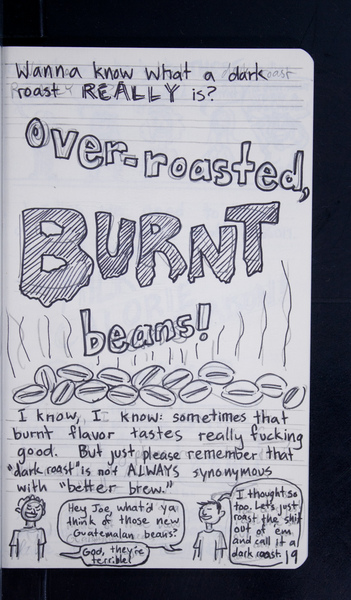 Wanna know what a dark
roast REALLY is?
Over-roasted,
BURNT
beans!
I know, I know: sometimes that
burnt flavor tastes really fucking
good. But just please remember that
"dark roast" is not ALWAYS synonymous
with "better brew."
Hey Joe, what'd ya
think of those new
Guatemalan beans?
God, they're
terrible!
I thought so
too. Let's just
roast the shit
out of em
and call it a
dark roast.
19